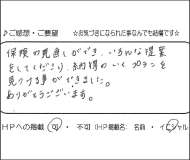 ♪ご感想・ご要望　☆お気づきになられた事なんでも結構です☆
保険の見直しができ、いろんな提案
をしてくださり、納得のいくプランを
見つける事ができました。
ありがとうございます。
HPへの掲載 可 ・ 不可 (HP掲載名: 名前 ・ イニシャル